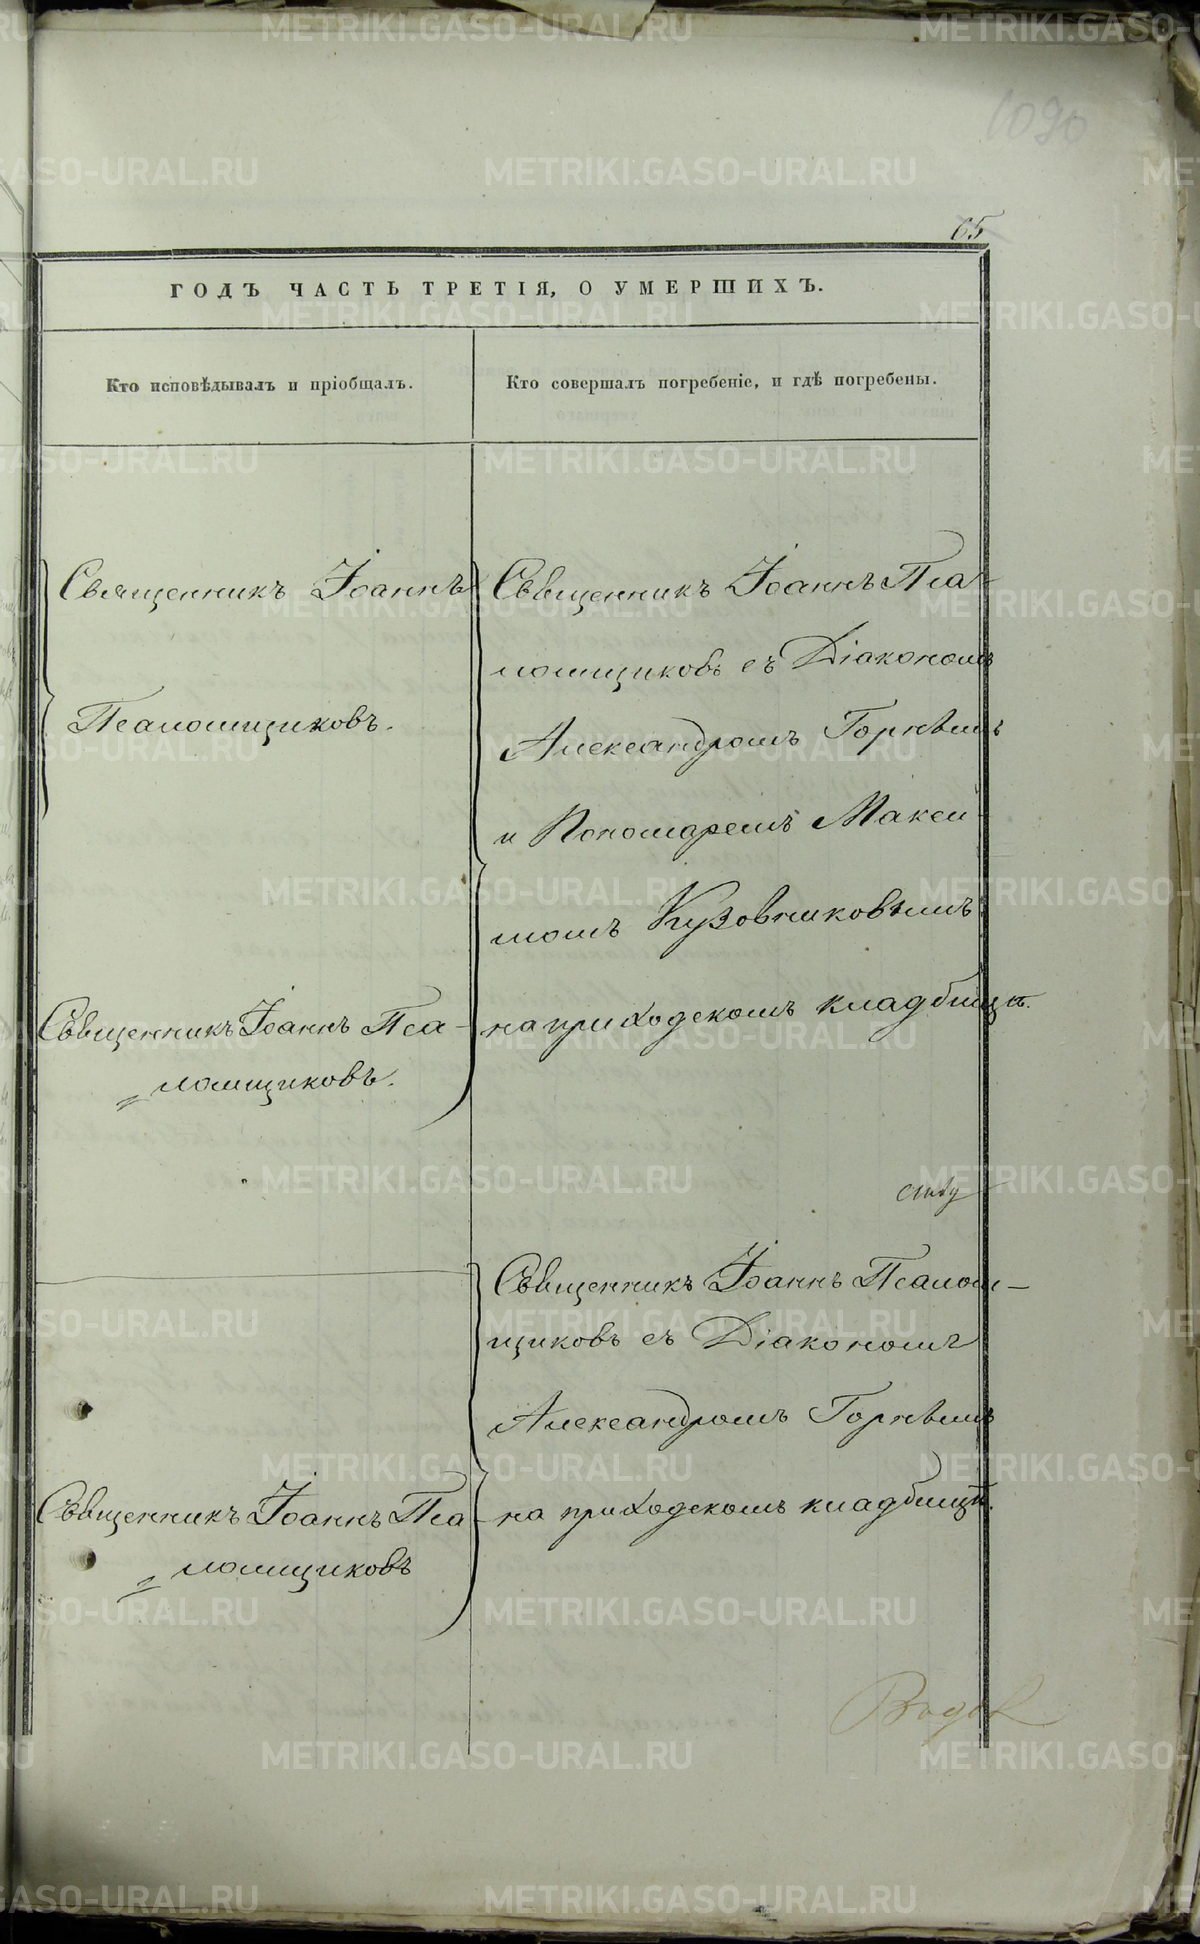 1090
65
ГОДЪ ЧАСТЬ ТРЕТІЯ, О УМЕРШИХЪ.
Кто исповѣдывалъ и пріобщалъ.
Кто совершалъ погребеніе, и гдѣ погребены.
Священникъ Іоаннъ
Псаломщиковъ.
Священникъ Іоаннъ Пса-
ломщиковъ.
Священникъ Іоаннъ Пса-
ломщиковъ съ Діакономъ
Александромъ Горнѣмъ
и Пономаремъ Макси-
момъ Кузовниковымъ
на приходскомъ кладбищѣ.
Священникъ Іоаннъ Пса-
ломщиковъ
Священникъ Іоаннъ Псалом-
щиковъ съ Діакономъ
Александромъ Горнѣмъ
на приходскомъ кладбищѣ.
METRIKI.GASO-URAL.RU